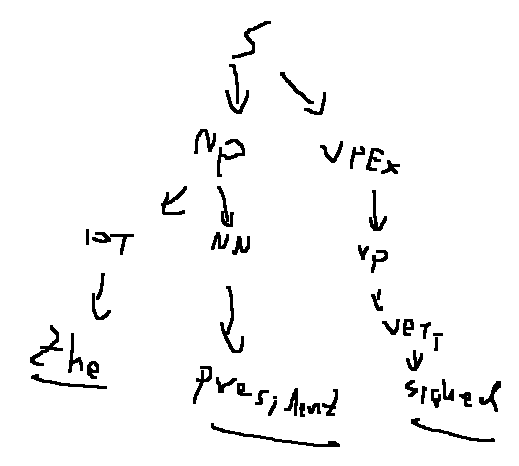 S
NP VPEx
DT NN VP
VerT
the president sighed